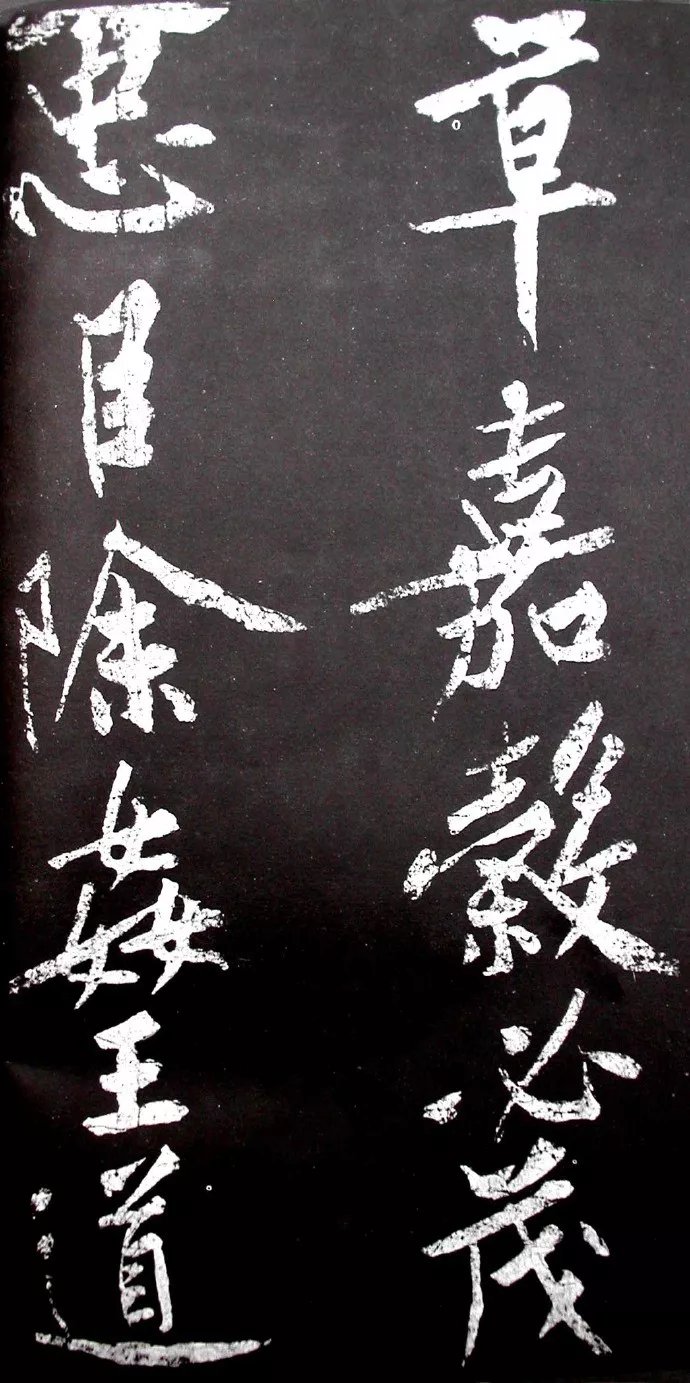 草嘉穀必茂
忠臣除姦王道